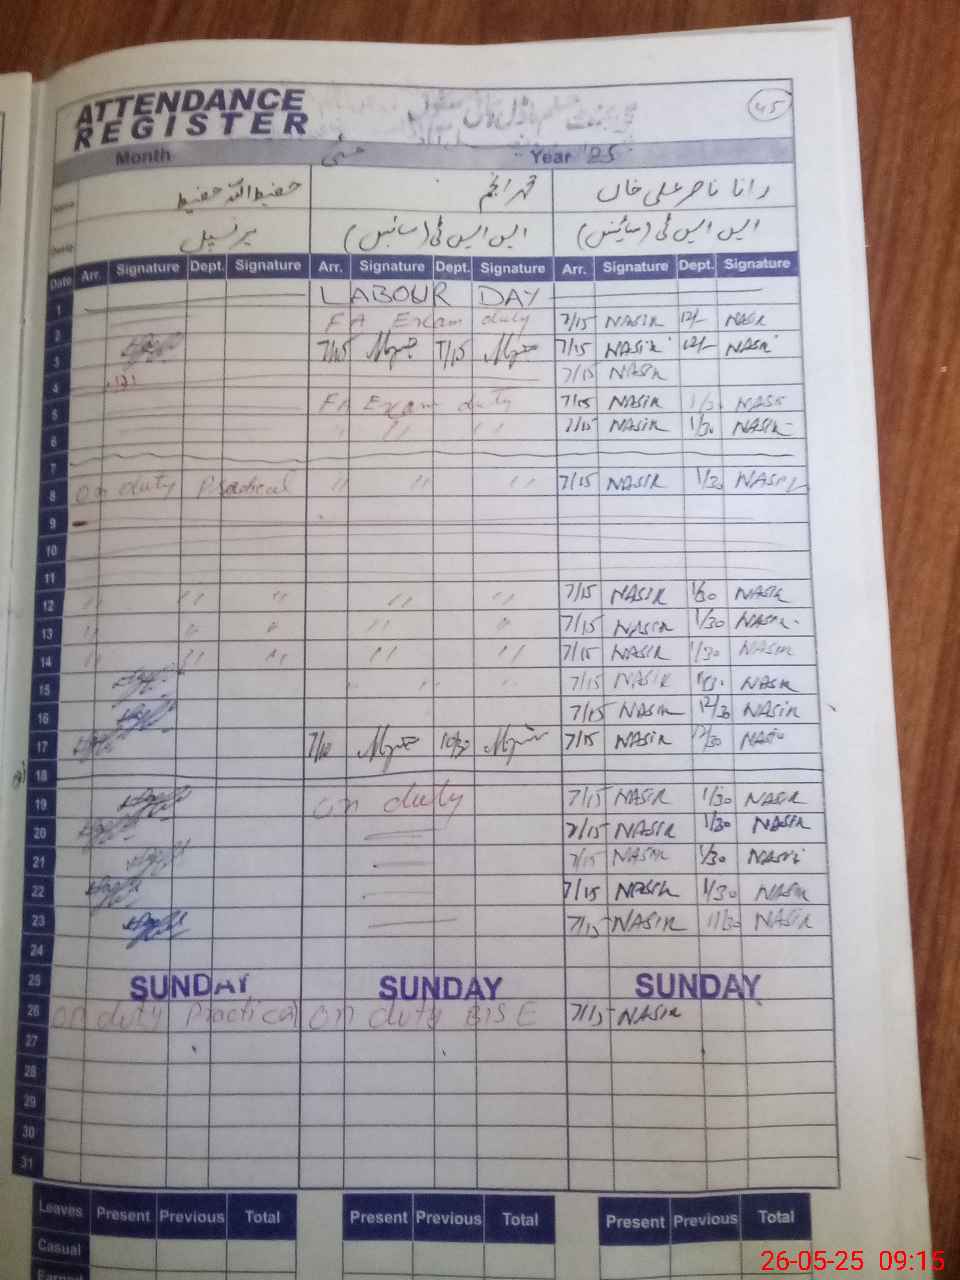 ATTENDANCE
REGISTER
45
Month مئی Year '25
Name حفیظ اللہ حفیظ محمد انجم رانا ناصر علی خاں
پرنسپل ایس ایس ٹی (سائنس) ایس ایس ٹی (سائنس)
Date Arr. Signature Dept. Signature Arr. Signature Dept. Signature Arr. Signature Dept. Signature
1 LABOUR DAY
2 FA Exam duty 7/15 NASIR 12/- NASIR
3 7/15 7/15 7/15 NASIR 12/- NASIR
4 7/15 NASIR
5 FA Exam duty 7/15 NASIR 1/30 NASIR
6 " " " 7/15 NASIR 1/30 NASIR
7
8 on duty Practical " " " 7/15 NASIR 1/30 NASIR
9
10
11
12 " " " " " 7/15 NASIR 1/30 NASIR
13 " " " " " 7/15 NASIR 1/30 NASIR
14 " " " " " 7/15 NASIR 1/30 NASIR
15 " " " 7/15 NASIR NASIR
16 7/15 NASIR 12/30 NASIR
17 10/30 7/15 NASIR 12/30 NASIR
18
19 on duty 7/15 NASIR 1/30 NASIR
20 7/15 NASIR 1/30 NASIR
21 7/15 NASIR 1/30 NASIR
22 7/15 NASIR 1/30 NASIR
23 7/15 NASIR 11/30 NASIR
24
25 SUNDAY SUNDAY SUNDAY
26 on duty Practical on duty BISE 7/15 NASIR
27
28
29
30
31
Leaves Present Previous Total Present Previous Total Present Previous Total
Casual
Earned
26-05-25 09:15